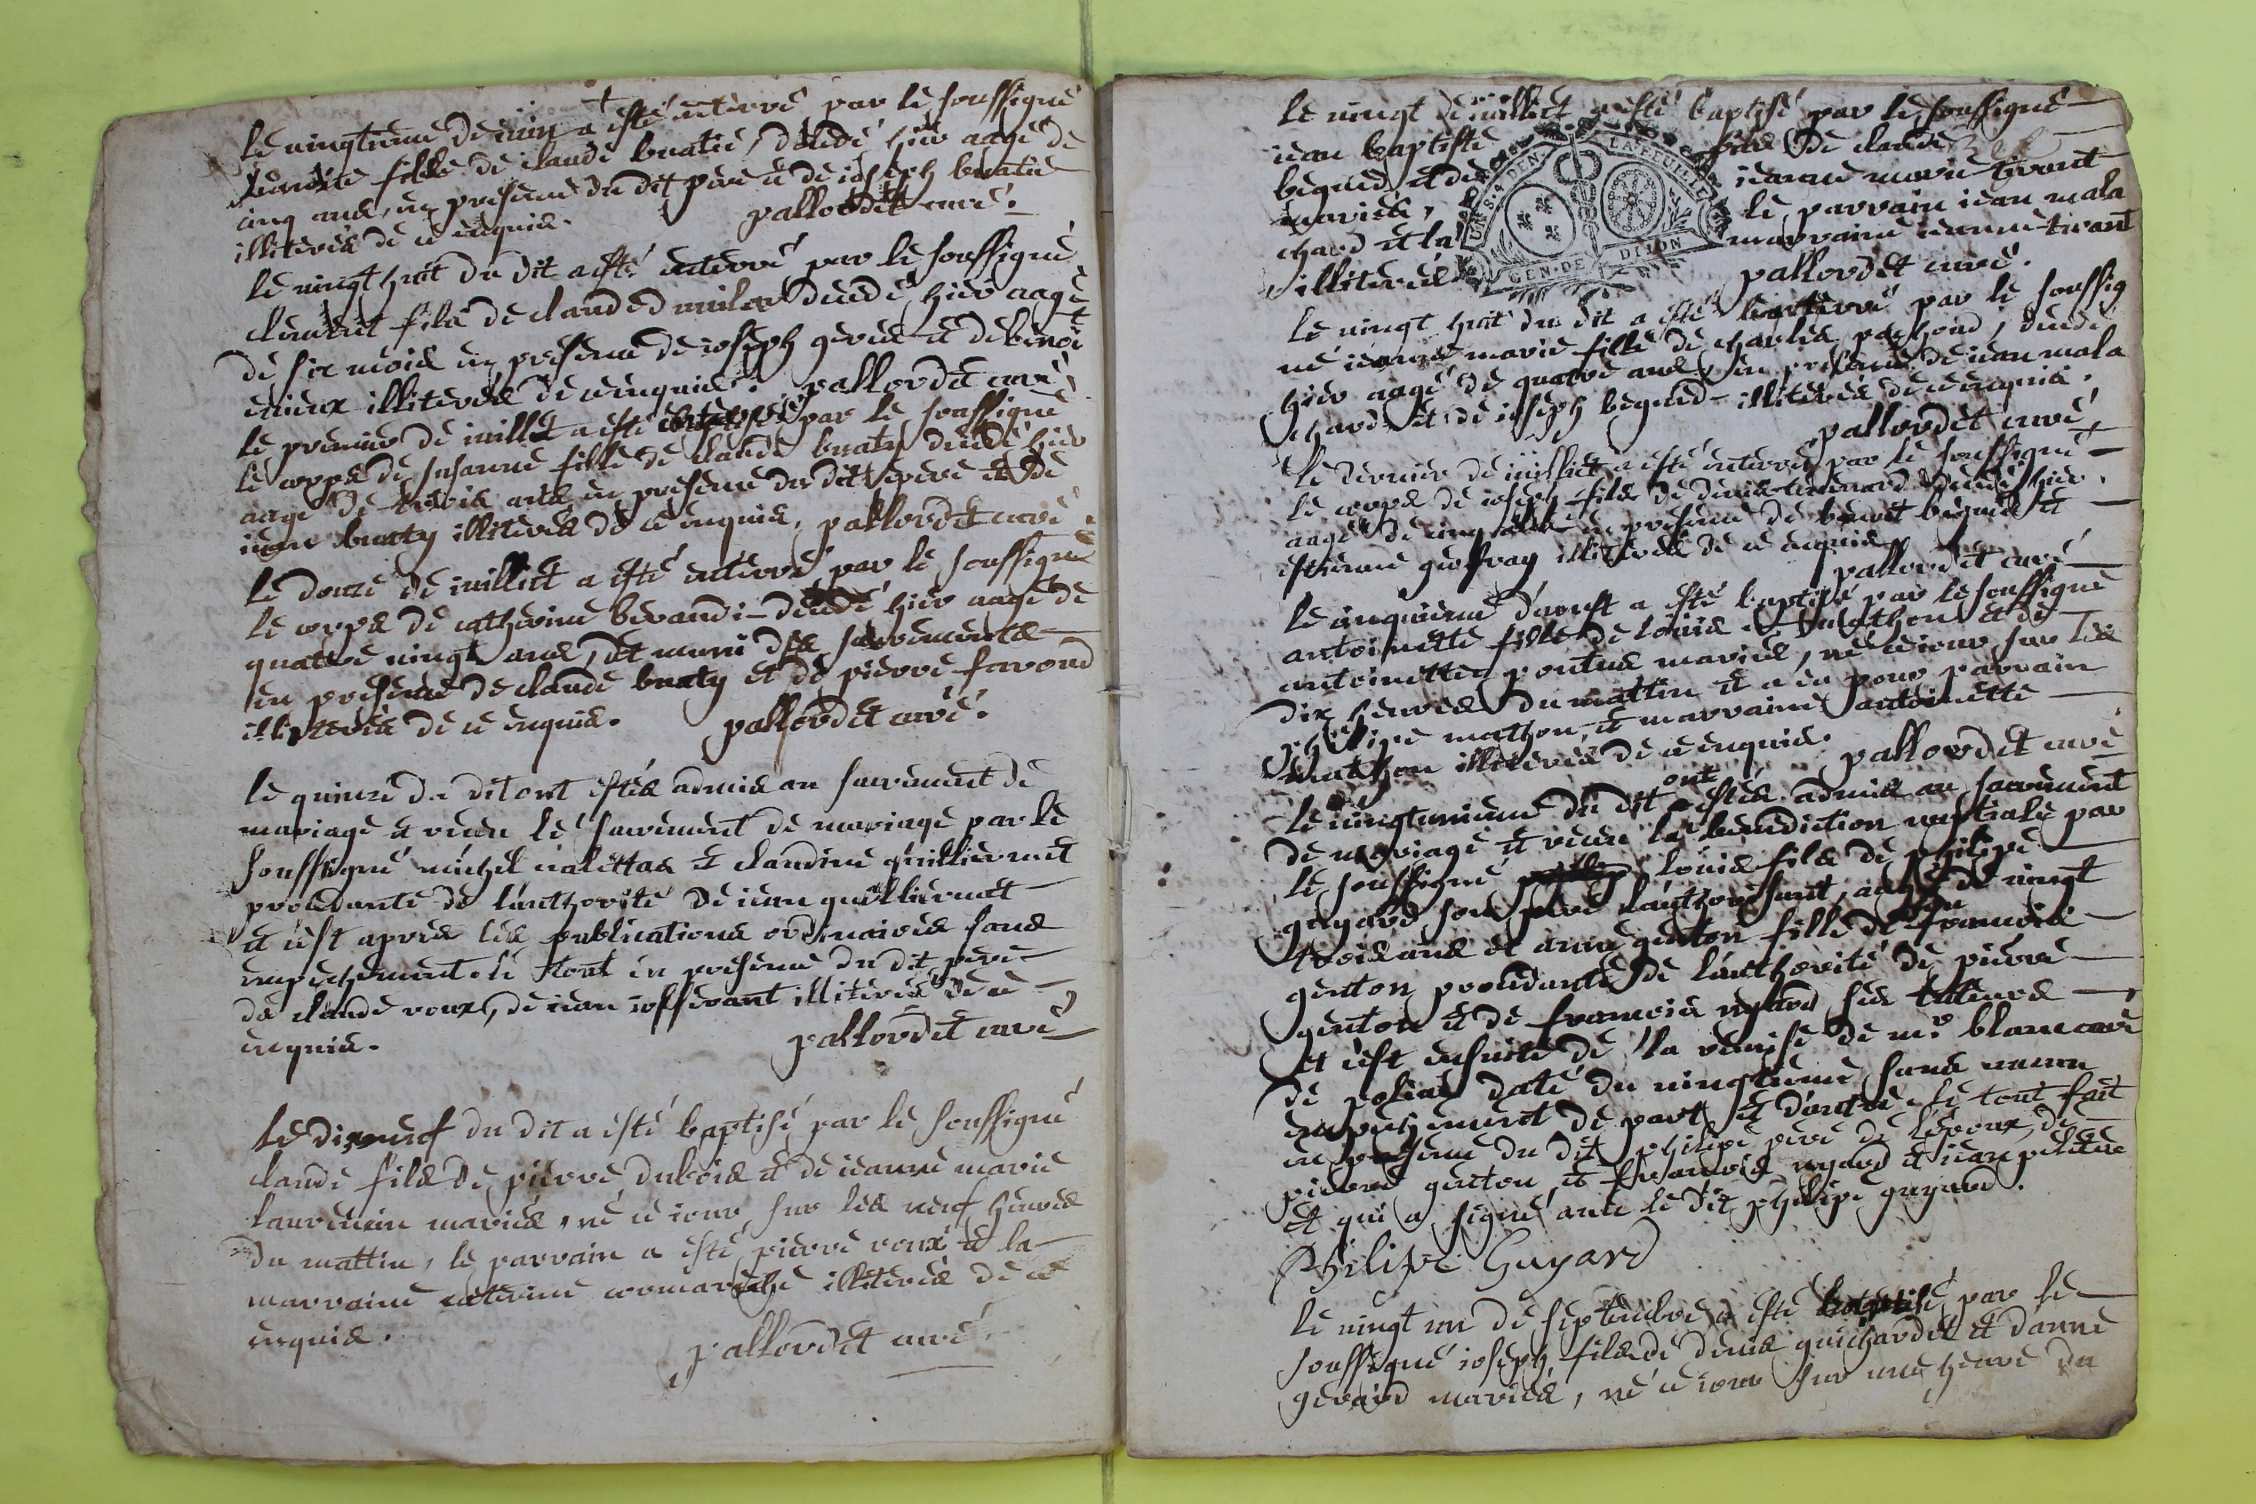 le vingtieme de iuin a esté enterré par le soussigné
fille de claude buatié, decedé hier aagé de
cinq ans, en presence du dit pere et de ioseph buatié
illiterés de ce enquis. pallordet curé.
le vingt huit du dit a esté enterré par le soussigné
clement fils de claude decedé hier aagé
de six mois en presence de ioseph et de benoit
illiterés de ce enquis. pallordet curé
le premier de iuillet a esté par le soussigné
le corps de susanne fille de claude buaty decedé hier
aagé de trois ans en presence du dit pere et de
buaty illiterés de ce enquis, pallordet curé.
le douze de iuillet a esté enterré par le soussigné
le corps de catherine berandi decedé hier aagé de
quatre vingt ans, et muni des sacrements
en presence de claude buaty et de pierre favond
illiterés de ce enquis. pallordet curé.
le quinze du dit ont estés admis au sacrement de
mariage et receu le sacrement de mariage par le
soussigné michel et claudine quilliermet
procedante de l'authorité de iean quilliermet
et c'est apres les publications ordinaires sans
empechement le tout en presence du dit pere
de claude roux, de iean iofferant illiterés de ce
enquis. pallordet curé
le dixneuf du dit a esté baptisé par le soussigné
claude fils de pierre dubois et de ieanne marie
laurencin mariés, né ce iour sur les neuf heures
du mattin, le parrain a esté pierre roux et la
marraine caterine illiterés de ce
enquis.
pallordet curé
le vingt de iuillet a esté baptisé par le soussigné
iean baptiste fils de claude
begued et de ieanne marie tirant
mariés, le parrain iean mala
chard et la marraine ieanne tirant
illiterés
UN S. 4 DEN. LA FEUILLE
GEN. DE DIJON
pallordet curé.
le vingt huit du dit a esté enterré par le soussig
né ieanne marie fille de charles pachoud, decedé
hier aagé de quatre ans, en presence de iean mala
chard et de ioseph begued illiterés de ce enquis.
pallordet curé
le dernier de iuillet a esté enterré par le soussigné
le corps de ioseph fils de denis decedé hier
aagé de cinq en presence de benoit begued et
estienne geoffray illiterés de ce enquis
pallordet curé
le cinquieme d'aoust a esté baptisé par le soussigné
antoinette fille de louis mathon et de
antoinette pontus mariés, né ce iour sur les
dix heures du mattin et a eu pour parrain
philipe mathon, et marraine antoinette
mathon illiterés de ce enquis.
pallordet curé
le vingtunieme du dit ont estés admis au sacrement
de mariage et receu la benediction nuptiale par
le soussigné louis fils de philipe
guyard son pere l'authorisant, aagé de vingt
trois ans et anne genton fille de francois
genton procedante de l'authorité de pierre
genton et de francois nyard ses tuteurs
et c'est ensuite de la remise de mr. blanc curé
de polias daté du vingtieme sans aucun
empechement de part et d'autre. le tout fait
en presence du dit philipe pere de l'epoux, de
pierre genton, et francois nyard et iean peletier
et qui a signé avec le dit philipe guyard.
Philipe Guyard
le vingt un de septembre a esté baptisé par le
soussigné ioseph fils de denis guichardet et d'anne
gerard mariés, né ce iour sur une heure du